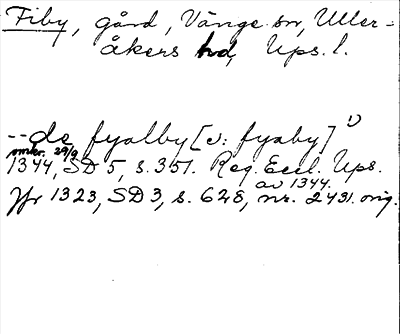 Fiby, gård, Vänge sn, Uller-
åkers hd, Ups. l.
-- de fyalby [ɔ: fyæby] 1)
omkr. 29/9
1344, SD 5, s. 351. Reg. Eccl. Ups.
av 1344.
Jfr 1323, SD 3, s. 628, nr. 2431. orig.